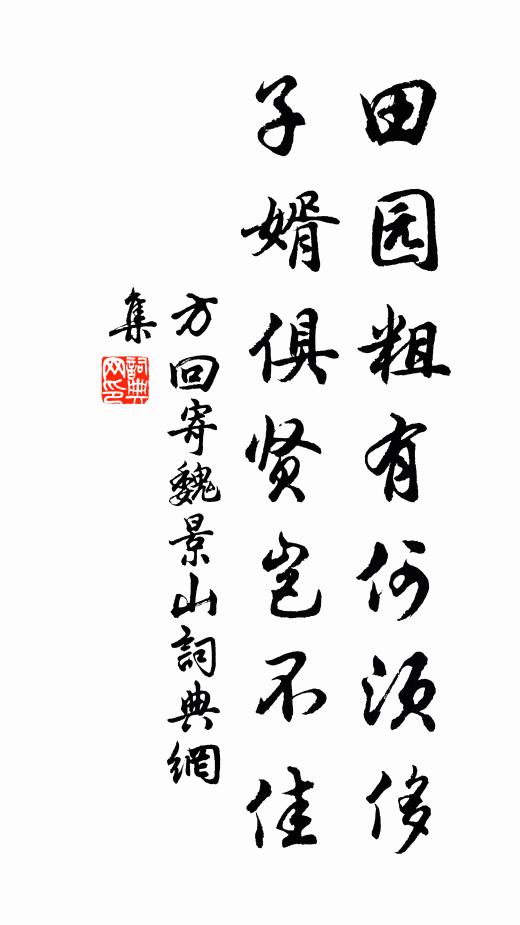 田园粗有何须侈
子婿俱贤岂不佳
方回寄魏景山詞典網
集
詞典
网印